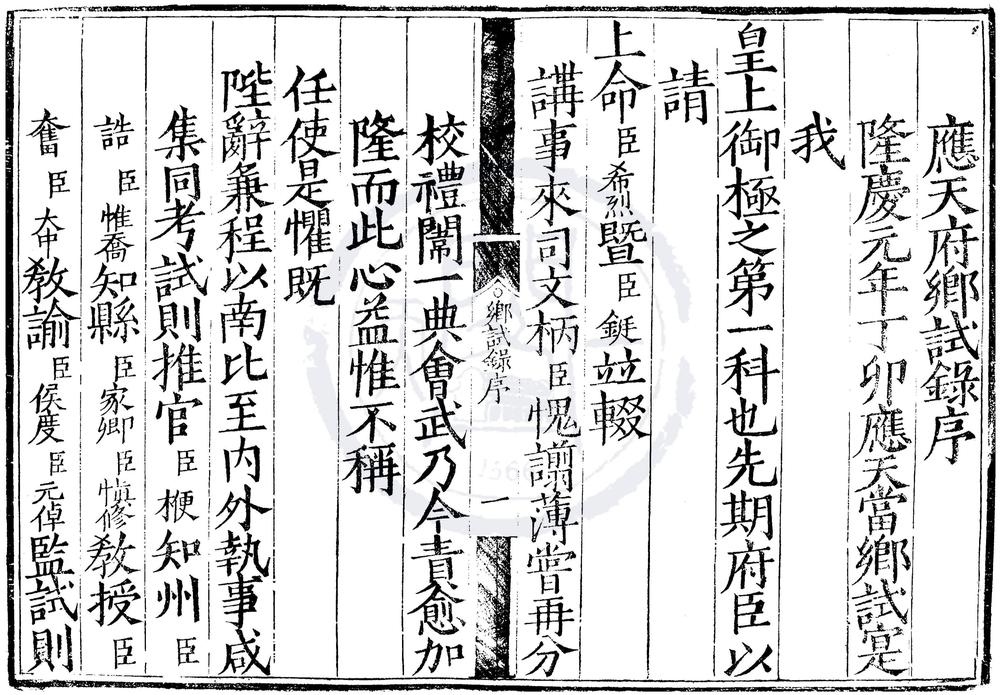 應天府鄉試錄序
隆慶元年丁卯應天當鄉試寔
我
皇上御極之第一科也先期府臣以
請
上命臣希烈暨臣鋌竝輟
講事來司文柄臣愧謭薄嘗再分
鄉試錄序
一
校禮闈一典會武乃今責愈加
隆而此心益惟不稱
任使是懼既
陛辭兼程以南比至内外執事咸
集同考試則推官臣楩知州臣
誥臣惟喬知縣臣家卿臣慎修教授臣
奮臣大中教諭臣侯度臣元倬監試則